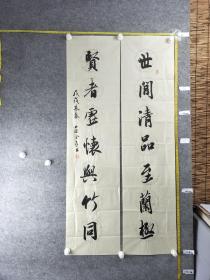 世间清品至蘭極
賢者虚懷與竹同
戊戌